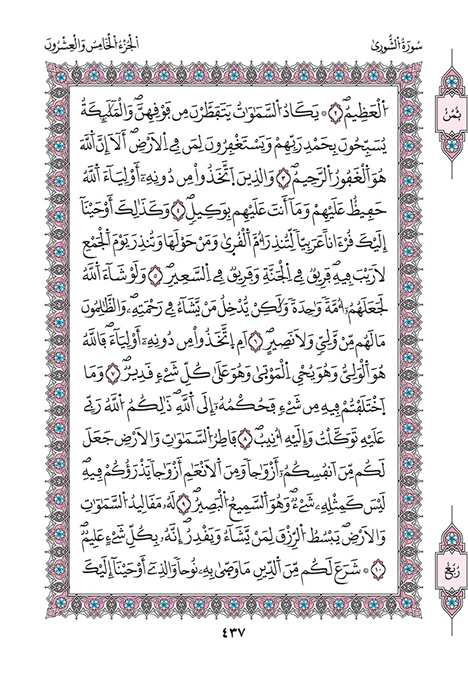 سُورَةُ الشُّورَىٰ
الجُزْءُ الْخَامِسُ وَالْعِشْرُونَ
ثُمُنْ
اَ۬لْعَظِيمُۖ ٢ ۞ يَكَادُ اُ۬لسَّمَٰوَٰتُ يَتَفَطَّرْنَ مِن فَوْقِهِنَّۖ وَالْمَلَٰٓئِكَةُ
يُسَبِّحُونَ بِحَمْدِ رَبِّهِمْ وَيَسْتَغْفِرُونَ لِمَن فِے اِ۬لَارْضِۖ أَلَآ إِنَّ اَ۬للَّهَ
هُوَ اَ۬لْغَفُورُ اُ۬لرَّحِيمُۖ ٣ وَالذِينَ اَ۪تَّخَذُواْ مِن دُونِهِۦٓ أَوْلِيَآءَ اَ۬للَّهُ
حَفِيظٌ عَلَيْهِمْ وَمَآ أَنتَ عَلَيْهِم بِوَكِيلٖۖ ٤ وَكَذَٰلِكَ أَوْحَيْنَآ
إِلَيْكَ قُرْءَاناً عَرَبِيّاٗ لِّتُنذِرَ أُمَّ اَ۬لْقُر۪ىٰ وَمَنْ حَوْلَهَا وَتُنذِرَ يَوْمَ اَ۬لْجَمْعِ
لَا رَيْبَ فِيهِۖ فَرِيقٞ فِے اِ۬لْجَنَّةِ وَفَرِيقٞ فِے اِ۬لسَّعِيرِۖ ٥ وَلَوْ شَآءَ اَ۬للَّهُ
لَجَعَلَهُمُۥٓ أُمَّةٗ وَٰحِدَةٗ وَلَٰكِنْ يُّدْخِلُ مَنْ يَّشَآءُ فِے رَحْمَتِهِۦۖ وَالظَّٰلِمُونَ
مَا لَهُم مِّنْ وَّلِيّٖ وَلَا نَصِيرٍۖ ٦ اَمِ اِ۪تَّخَذُواْ مِن دُونِهِۦٓ أَوْلِيَآءَۖ فَاللَّهُ
هُوَ اَ۬لْوَلِيُّ وَهُوَ يُحْيِ اِ۬لْمَوْت۪ىٰ وَهُوَ عَلَىٰ كُلِّ شَےْءٖ قَدِيرٞۖ ٧ وَمَا
اَ۪خْتَلَفْتُمْ فِيهِ مِن شَےْءٖ فَحُكْمُهُۥٓ إِلَى اَ۬للَّهِۖ ذَٰلِكُمُ اُ۬للَّهُ رَبِّے
عَلَيْهِ تَوَكَّلْتُ وَإِلَيْهِ أُنِيبُۖ ٨ فَاطِرُ اُ۬لسَّمَٰوَٰتِ وَالَارْضِ جَعَلَ
لَكُم مِّنَ اَنفُسِكُمُۥٓ أَزْوَٰجاٗ وَمِنَ اَ۬لَانْعَٰمِ أَزْوَٰجاٗ يَذْرَؤُكُمْ فِيهِۖ
لَيْسَ كَمِثْلِهِۦ شَےْءٞۖ وَهُوَ اَ۬لسَّمِيعُ اُ۬لْبَصِيرُۖ ٩ لَهُۥ مَقَالِيدُ اُ۬لسَّمَٰوَٰتِ
وَالَارْضِۖ يَبْسُطُ اُ۬لرِّزْقَ لِمَنْ يَّشَآءُ وَيَقْدِرُۖ إِنَّهُۥ بِكُلِّ شَےْءٍ عَلِيمٞۖ
١٠ ۞ شَرَعَ لَكُم مِّنَ اَ۬لدِّينِ مَا وَصّ۪ىٰ بِهِۦ نُوحاٗ وَالذِےٓ أَوْحَيْنَآ إِلَيْكَ
رُبُعْ
٤٣٧